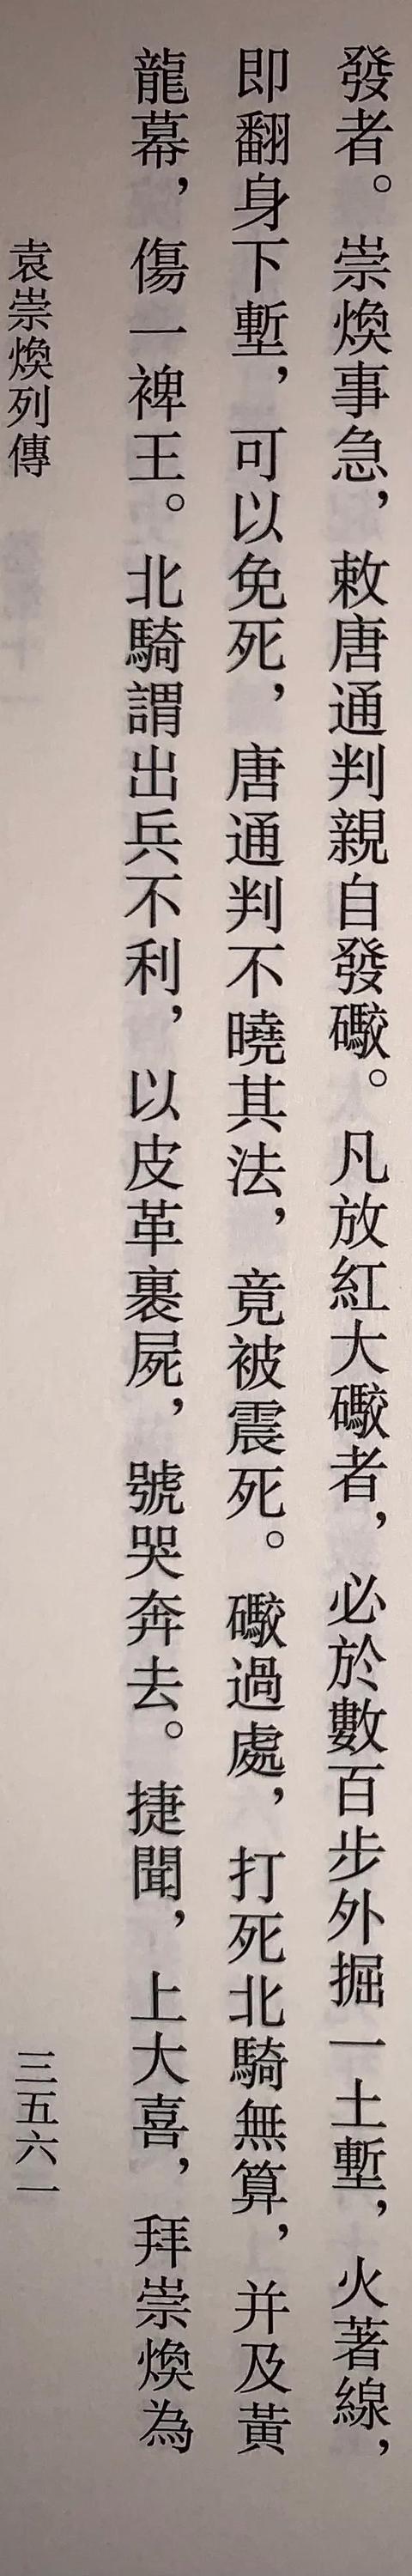 發者。崇煥事急，敕唐通判親自發礮。凡放紅大礮者，必於數百步外掘一土塹，火著線，
即翻身下塹，可以免死，唐通判不曉其法，竟被震死。礮過處，打死北騎無算，并及黃
龍幕，傷一裨王。北騎謂出兵不利，以皮革裹屍，號哭奔去。捷聞，上大喜，拜崇煥為
袁崇煥列傳
三五六一